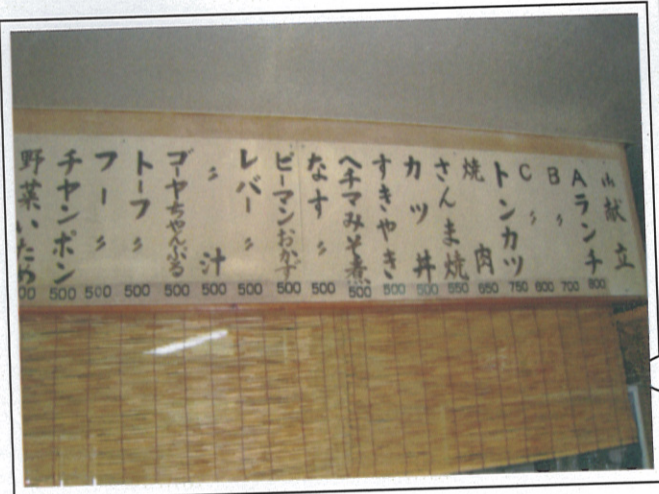 献立
Aランチ 800
B〃 700
C〃 600
トンカツ 750
焼肉 650
さんま焼 550
カツ丼 500
すきやき 500
ヘチマみそ煮 500
なす〃 500
ピーマンおかず 500
レバー〃 500
〃汁 500
ゴーヤちゃんぷる 500
トーフ〃 500
フー〃 500
チヤンポン 500
野菜いため 00